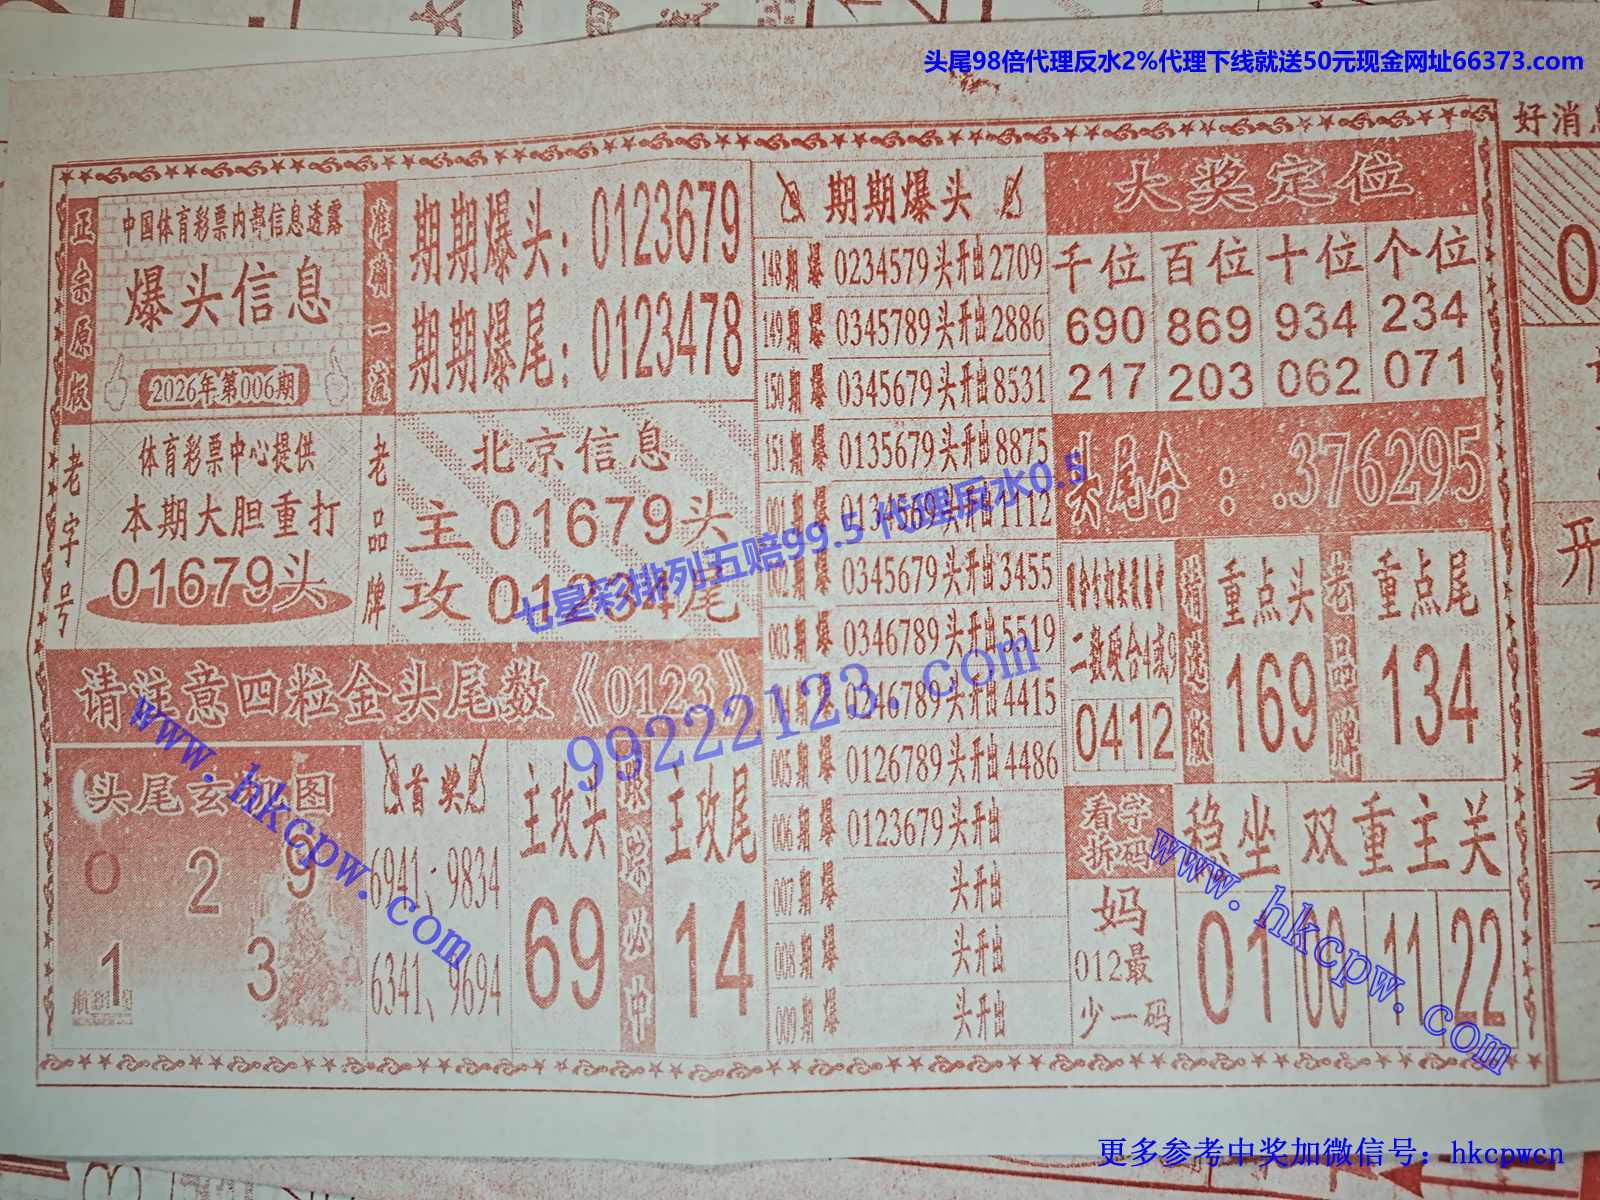 头尾98倍代理反水2%代理下线就送50元现金网址66373.com
好消
正宗原版
中国体育彩票内部信息透露
爆头信息
2026年第006期
准确一流
期期爆头：0123679
期期爆尾：0123478
老字号
体育彩票中心提供
本期大胆重打
01679头
老品牌
北京信息
主01679头
攻01234尾
请注意四粒金头尾数《0123》
头尾玄机图
0 2 9
1 3
首奖
6941、9834
6341、9694
主攻头
69
必中
主攻尾
14
期期爆头
148期爆 0234579头开出2709
149期爆 0345789头开出2886
150期爆 0345679头开出8531
151期爆 0135679头开出8875
001期爆 0134569头开出1112
002期爆 0345679头开出3455
003期爆 0346789头开出5519
004期爆 0346789头开出4415
005期爆 0126789头开出4486
006期爆 0123679头开出
007期爆 头开出
008期爆 头开出
009期爆 头开出
大奖定位
千位 百位 十位 个位
690 869 934 234
217 203 062 071
头尾合：.376295
二数硬合4或9
0412
精选版
重点头
169
老品牌
重点尾
134
看字拆码
妈
012最
少一码
稳坐
01
双重主关
00 11 22
开
七星彩排列五赔99.5 代理反水0.5
99222123.com
www.hkcpw.com
www.hkcpw.com
更多参考中奖加微信号：hkcpwcn